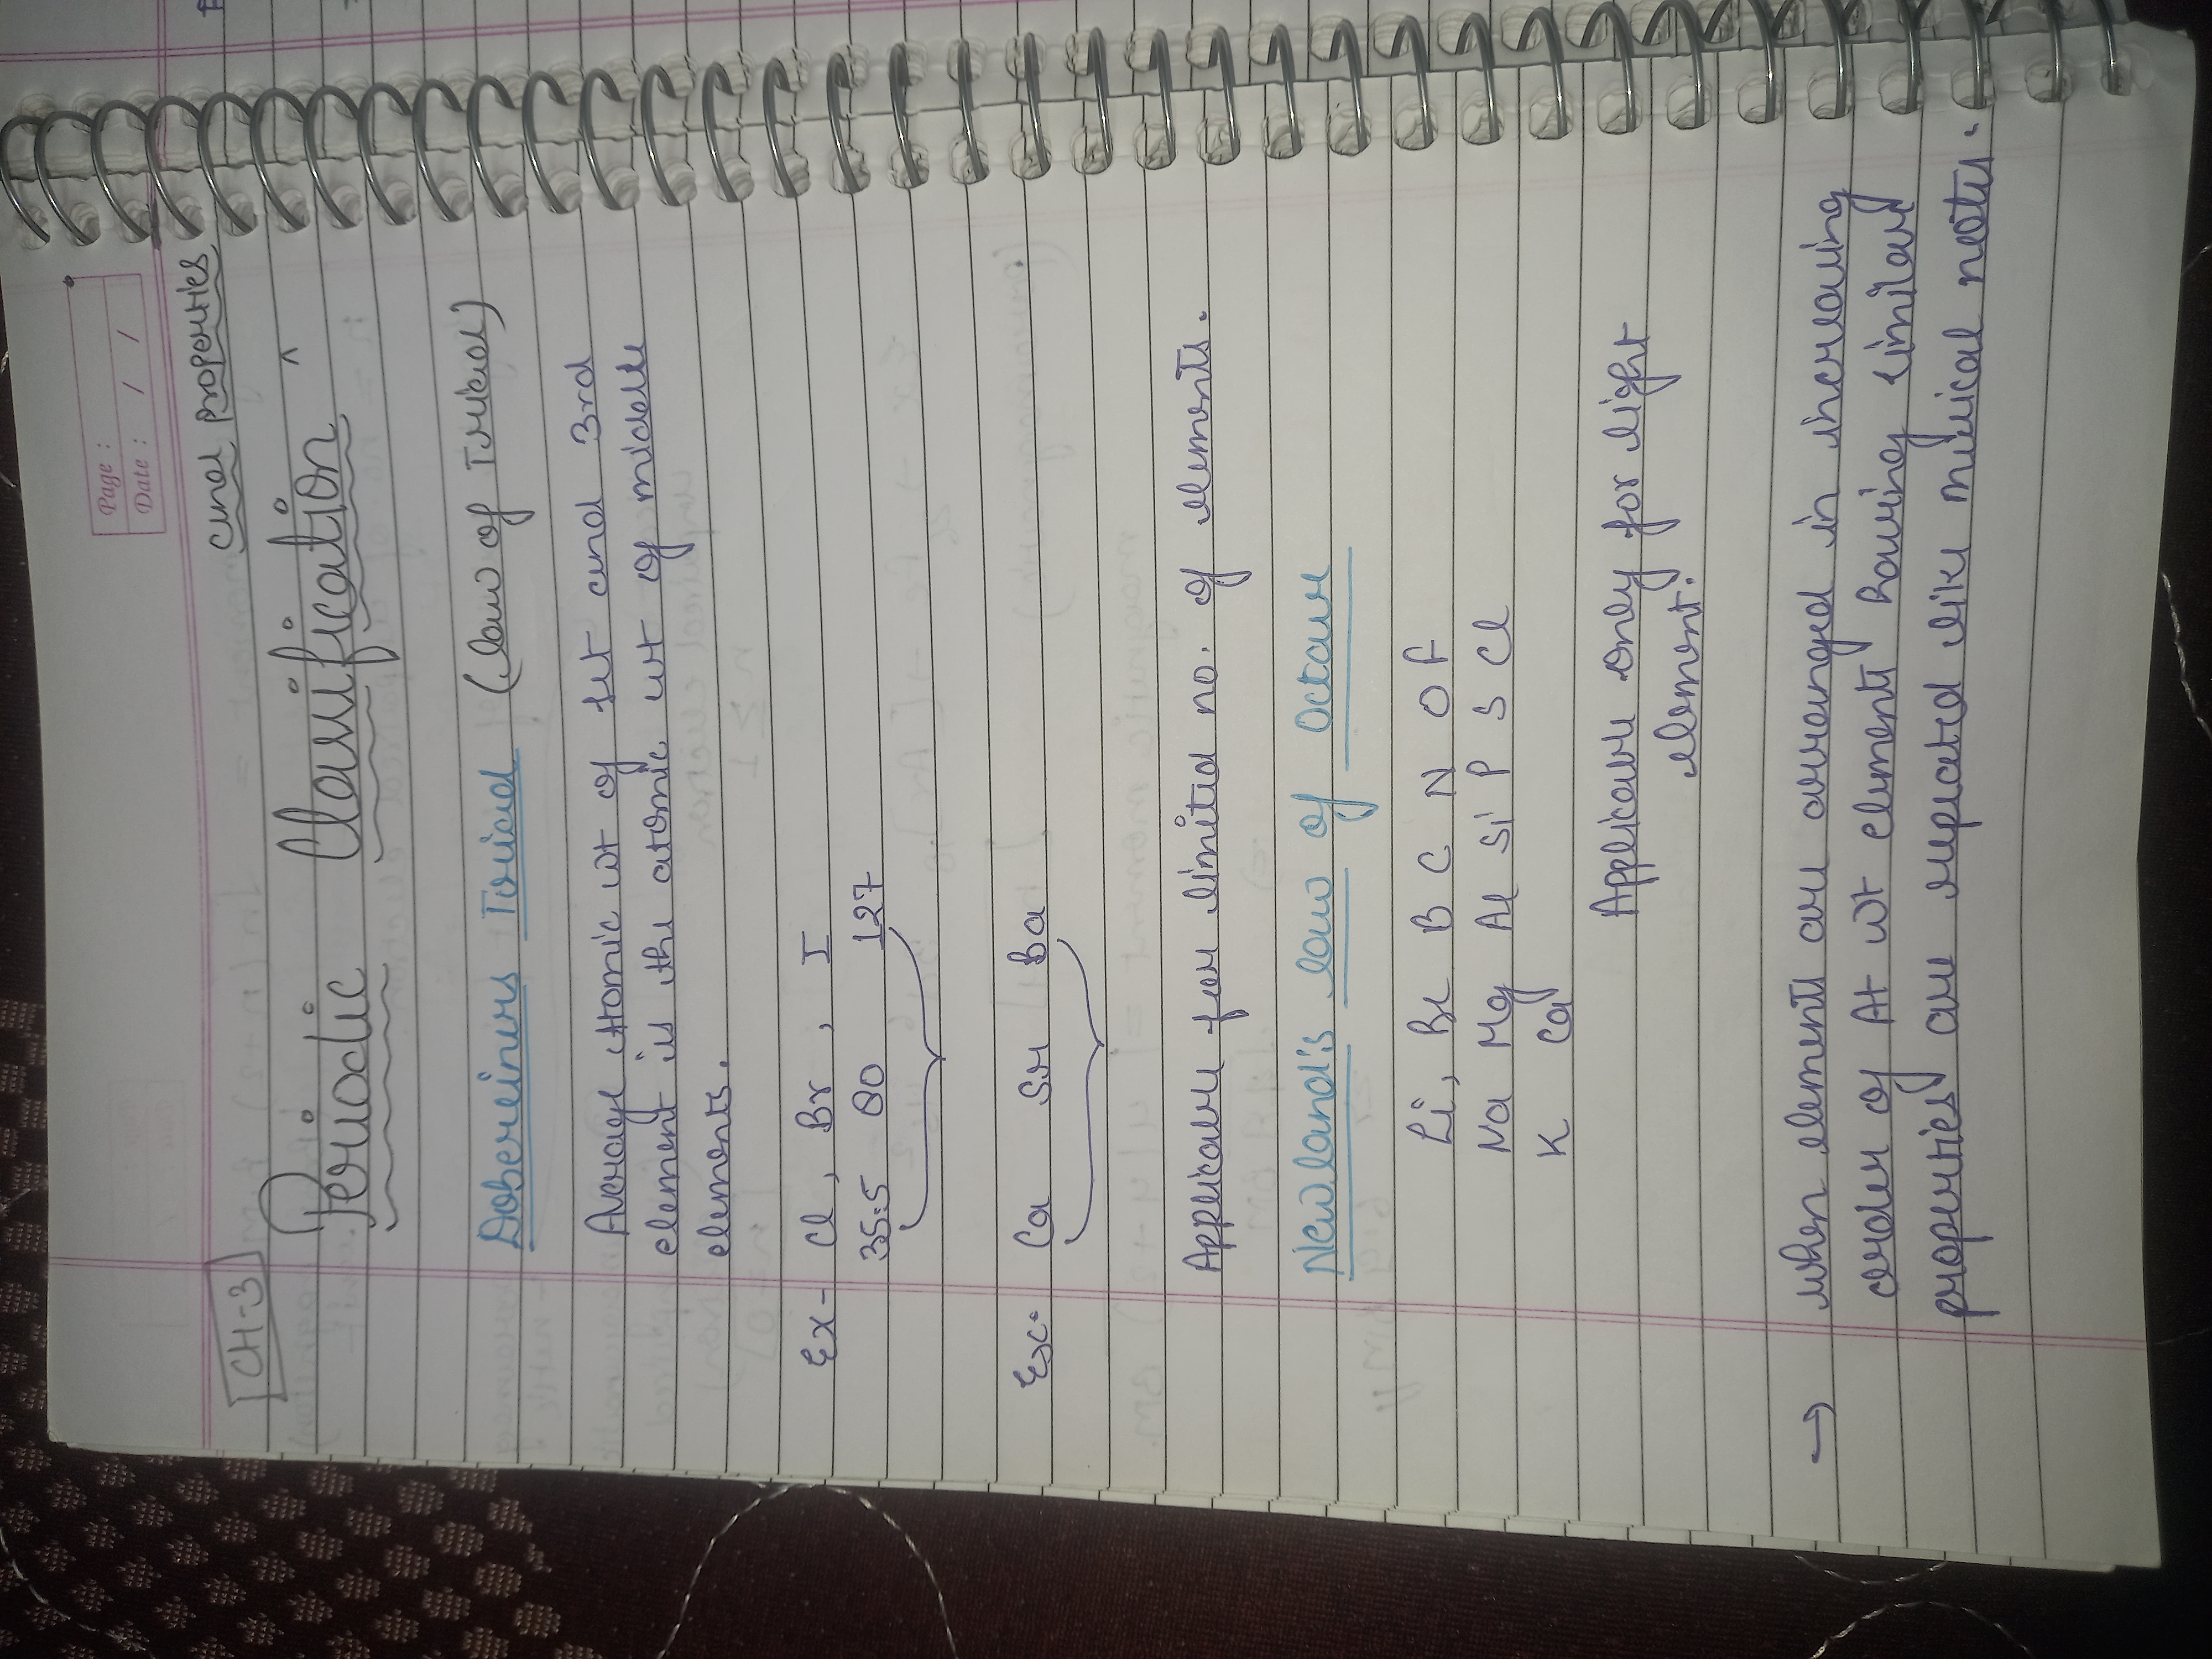 Page :
Date : / /
and properties
CH-3
Periodic Classification ^
Dobereiners Triad (law of Triad)
Average atomic wt of 1st and 3rd
element is the atomic wt of middle
elements.
Ex- Cl, Br, I
35.5 80 127
Ex. Ca Sr Ba
Applicable for limited no. of elements.
Newland's law of octave
Li, Be B C N O F
Na Mg Al Si P S Cl
K Ca
Applicable only for light
element.
→ when elements are arranged in increasing
order of At wt elements having similar
properties are repeated like musical notes.